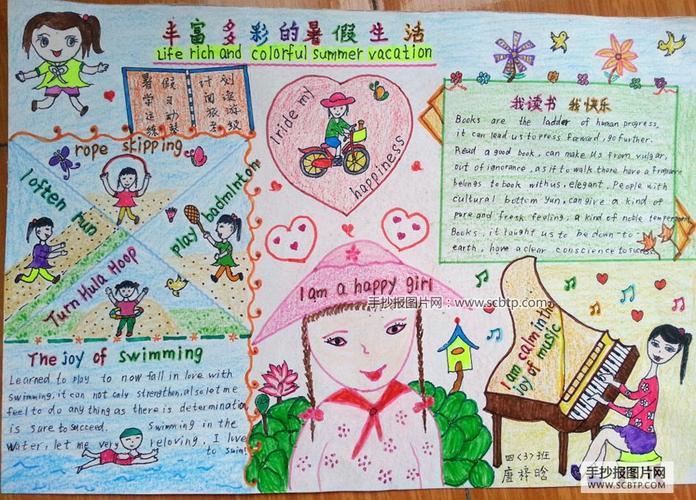 丰富多彩的暑假生活
Life rich and colorful summer vacation
rope skipping
I often run
play badminton
Turn Hula Hoop
I ride my
happiness
我读书 我快乐
Books are the ladder of human progress,
it can lead us to press forward, go further.
Read a good book, can make us from vulgar,
out of ignorance, as if to walk there, have a fragrance
belongs to book with us, elegant. People with
cultural bottom Yun, can give a kind of
pure and fresh feeling, a kind of noble temperament
Books, it taught us to be down-to-
earth, have a clear conscience to success.
I am a happy girl
手抄报图片网：www.scbtp.com
The joy of swimming
Learned to play to now fall in love with
swimming, it can not only strengthen, also let me
feel to do any thing as there is determination
is sure to succeed. Swimming in the
water, let me very reloving, I love
to swim!
I am calm in the
joy of music
四〈3〉班
手抄报图片网
WWW.SCBTP.COM